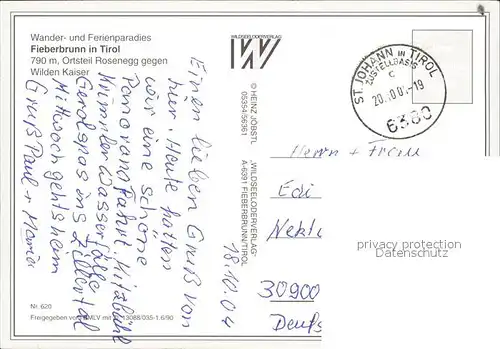 Wander- und Ferienparadies
Fieberbrunn in Tirol
790 m, Ortsteil Rosenegg gegen
Wilden Kaiser
Einen lieben Gruß von
hier. Heute hatten
wir eine schöne
Panorama Fahrt. Kitzbühel
Krimmler Wasserfälle
Gerlospass ins Zillertal
Mittwoch gehts heim
Gruß Paul + Maria
18.10.04
Nr. 620
Freigegeben vom BMLV mit 13088/035-1.6/90
WILDSEELODERVERLAG
© HEINZ JÖBSTL
05354/56361
„WILDSEELODERVERLAG“
A-6391 FIEBERBRUNN/TIROL
ST. JOHANN IN TIROL
ZUSTELLBASIS
C
-19
6380
Herrn + Frau
Edi
Nekta
30900
Deuts
privacy protection
Datenschutz